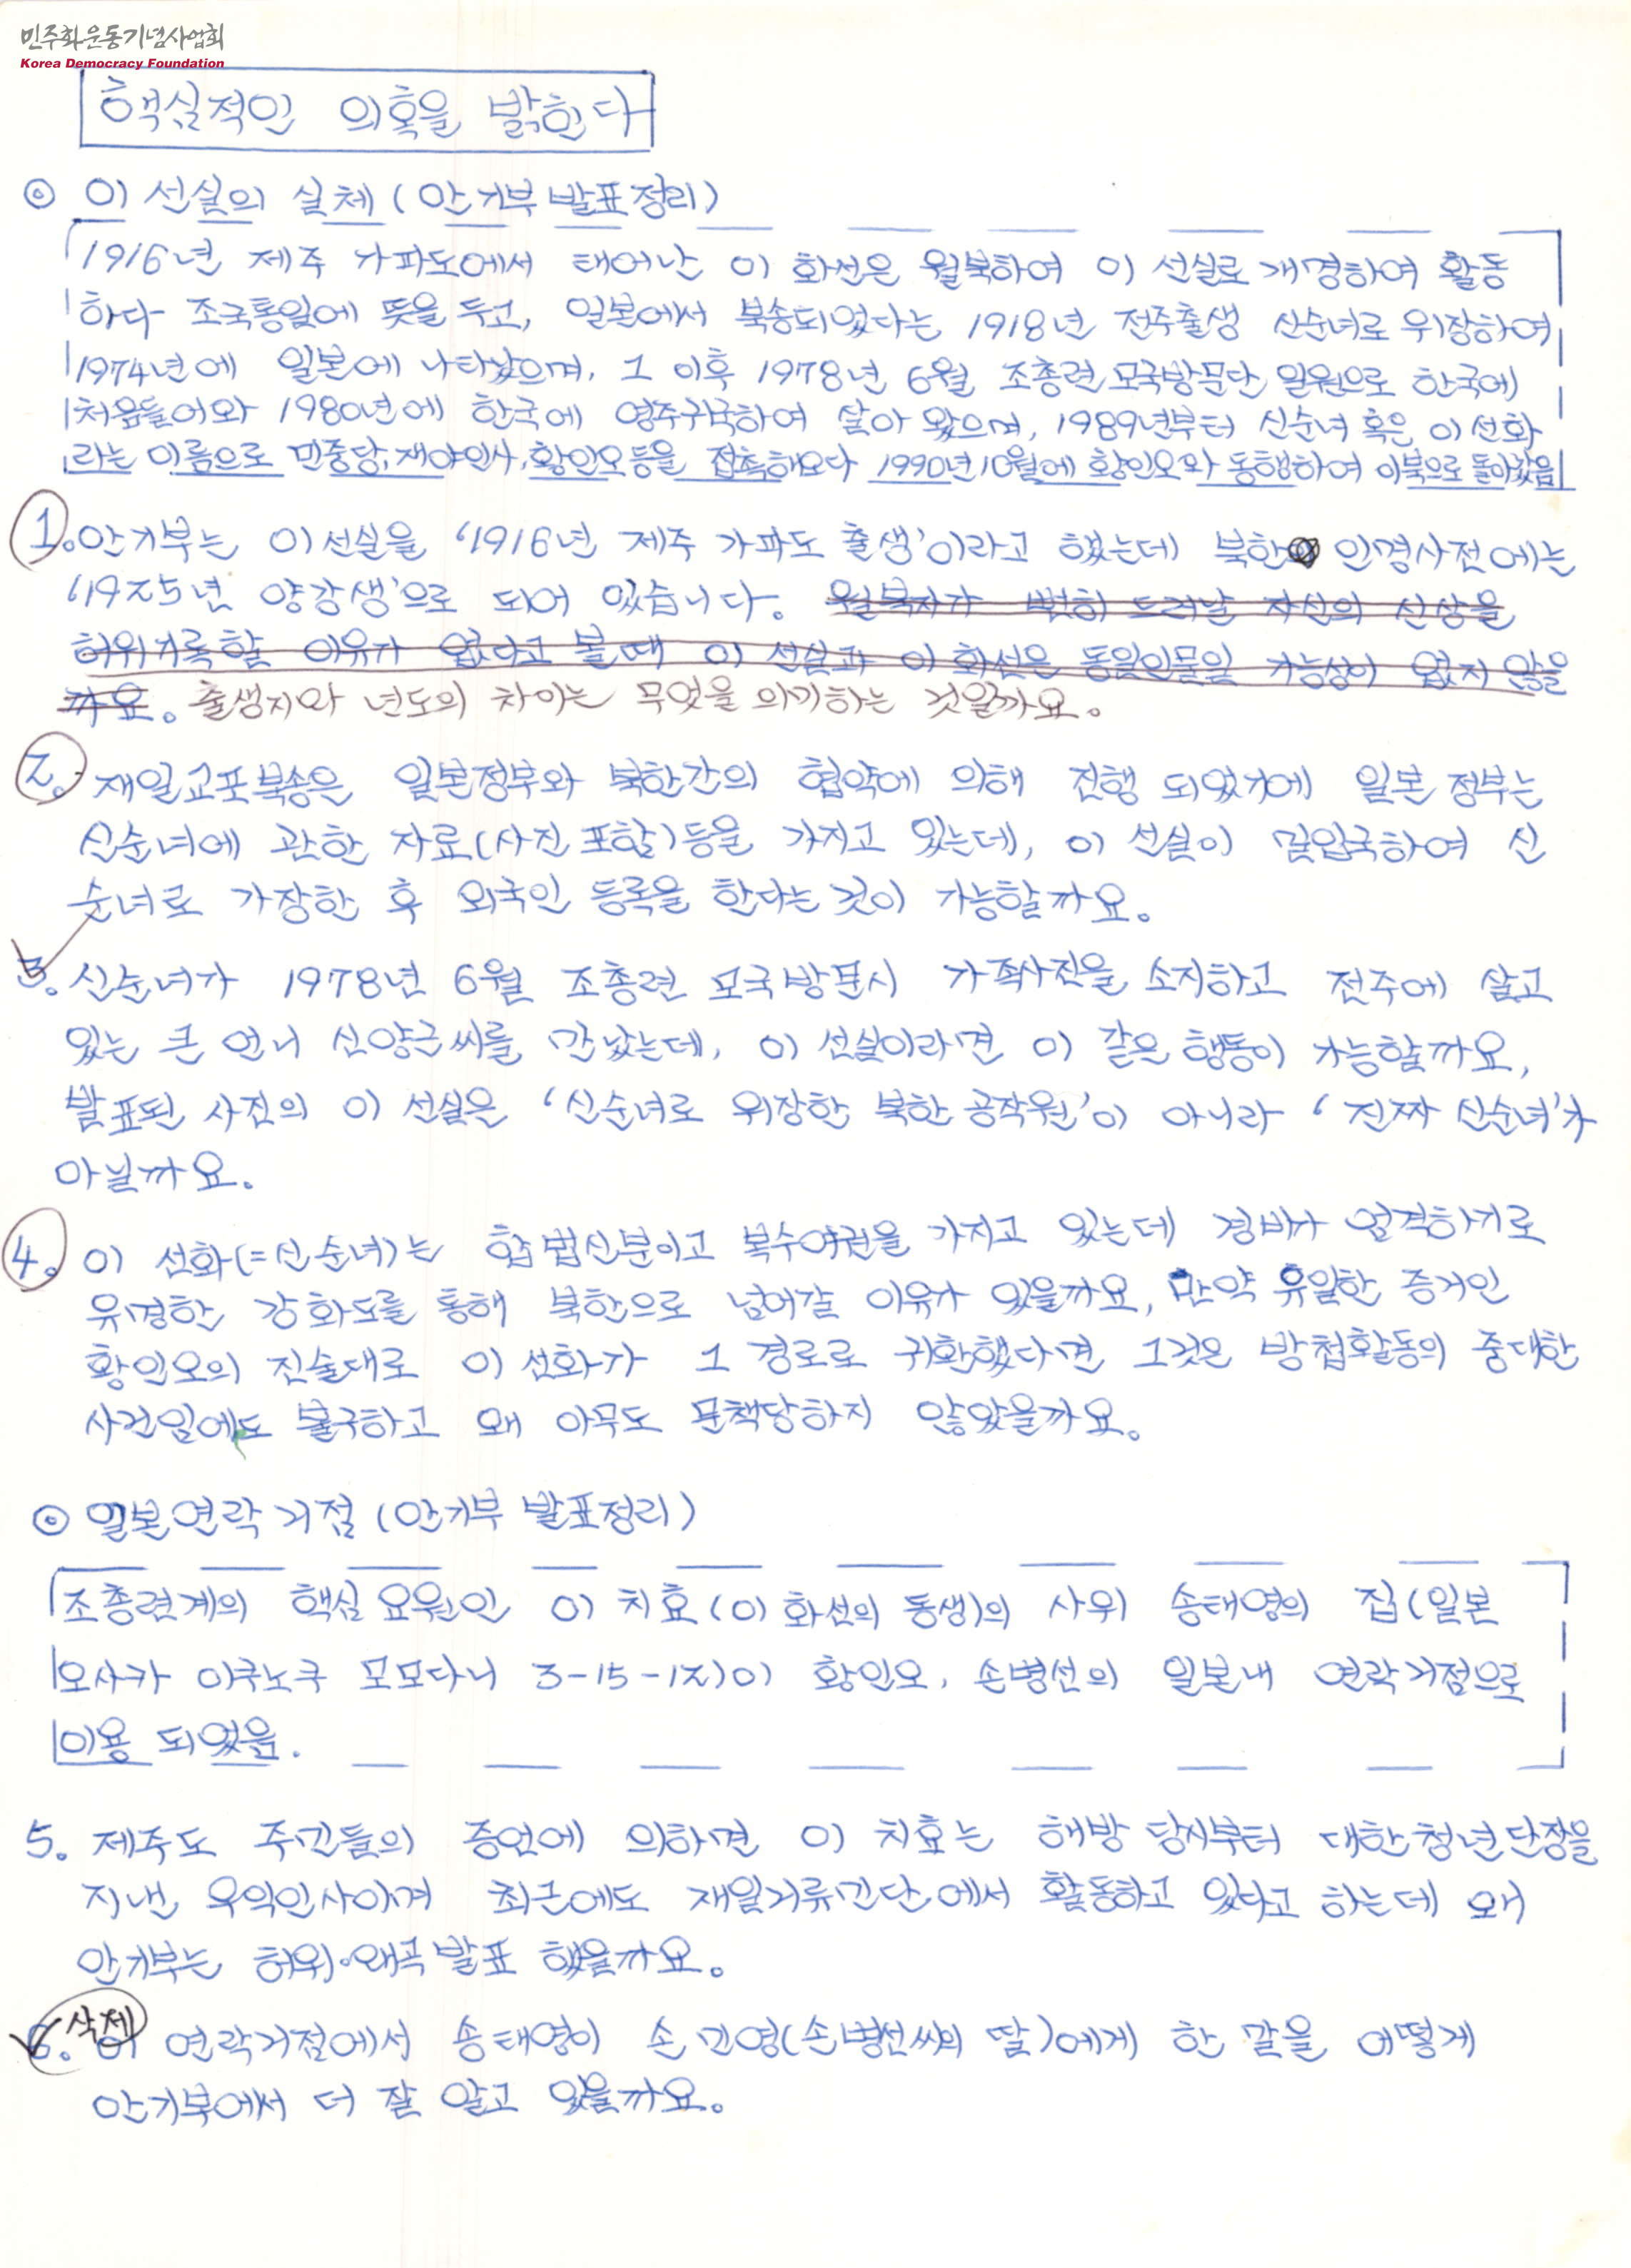 민주화운동기념사업회
Korea Democracy Foundation
핵심적인 의혹을 밝힌다
◎ 이 선실의 실체 (안기부 발표정리)
1916년 제주 가파도에서 태어난 이 화선은 월북하여 이 선실로 개명하여 활동
하다 조국통일에 뜻을 두고, 일본에서 북송되었다는 1918년 전주출생 신순녀로 위장하여
1974년에 일본에 나타났으며, 그 이후 1978년 6월 조총련 모국방문단 일원으로 한국에
처음들어와 1980년에 한국에 영주귀국하여 살아 왔으며, 1989년부터 신순녀 혹은 이선화
라는 이름으로 민중당, 재야인사, 황인오등을 접촉해오다 1990년 10월에 황인오와 동행하여 이북으로 돌아갔음
1. 안기부는 이선실을 '1916년 제주 가파도 출생'이라고 했는데 북한 인명사전에는
'1925년 양강생'으로 되어 있습니다. 월북자가 뻔히 드러날 자신의 신상을
허위기록할 이유가 없다고 볼때 이 선실과 이 화선은 동일인물일 가능성이 없지 않을
까요. 출생지와 년도의 차이는 무엇을 의미하는 것일까요.
2. 재일교포북송은 일본정부와 북한간의 협약에 의해 진행 되었기에 일본 정부는
신순녀에 관한 자료(사진 포함)등을 가지고 있는데, 이 선실이 밀입국하여 신
순녀로 가장한 후 외국인 등록을 한다는 것이 가능할까요.
3. 신순녀가 1978년 6월 조총련 모국방문시 가족사진을 소지하고 전주에 살고
있는 큰 언니 신양근씨를 만났는데, 이 선실이라면 이 같은 행동이 가능할까요,
발표된 사진의 이 선실은 '신순녀로 위장한 북한 공작원'이 아니라 '진짜 신순녀'가
아닐까요.
4. 이 선화(=신순녀)는 합법신분이고 복수여권을 가지고 있는데 경비가 엄격하기로
유명한 강화도를 통해 북한으로 넘어갈 이유가 있을까요, 만약 유일한 증거인
황인오의 진술대로 이 선화가 그 경로로 귀환했다면 그것은 방첩활동의 중대한
사건임에도 불구하고 왜 아무도 문책당하지 않았을까요.
◎ 일본연락 거점 (안기부 발표정리)
조총련계의 핵심 요원인 이 치효(이 화선의 동생)의 사위 송태영의 집(일본
오사카 이쿠노구 모모다니 3-15-12)이 황인오, 손병선의 일본내 연락거점으로
이용 되었음.
5. 제주도 주민들의 증언에 의하면 이 치효는 해방 당시부터 대한청년단장을
지낸 우익인사이며 최근에도 재일거류민단에서 활동하고 있다고 하는데 왜
안기부는 허위·왜곡 발표 했을까요.
삭제
6. 이 연락거점에서 송태영이 손 민영(손병선씨의 딸)에게 한 말을 어떻게
안기부에서 더 잘 알고 있을까요.